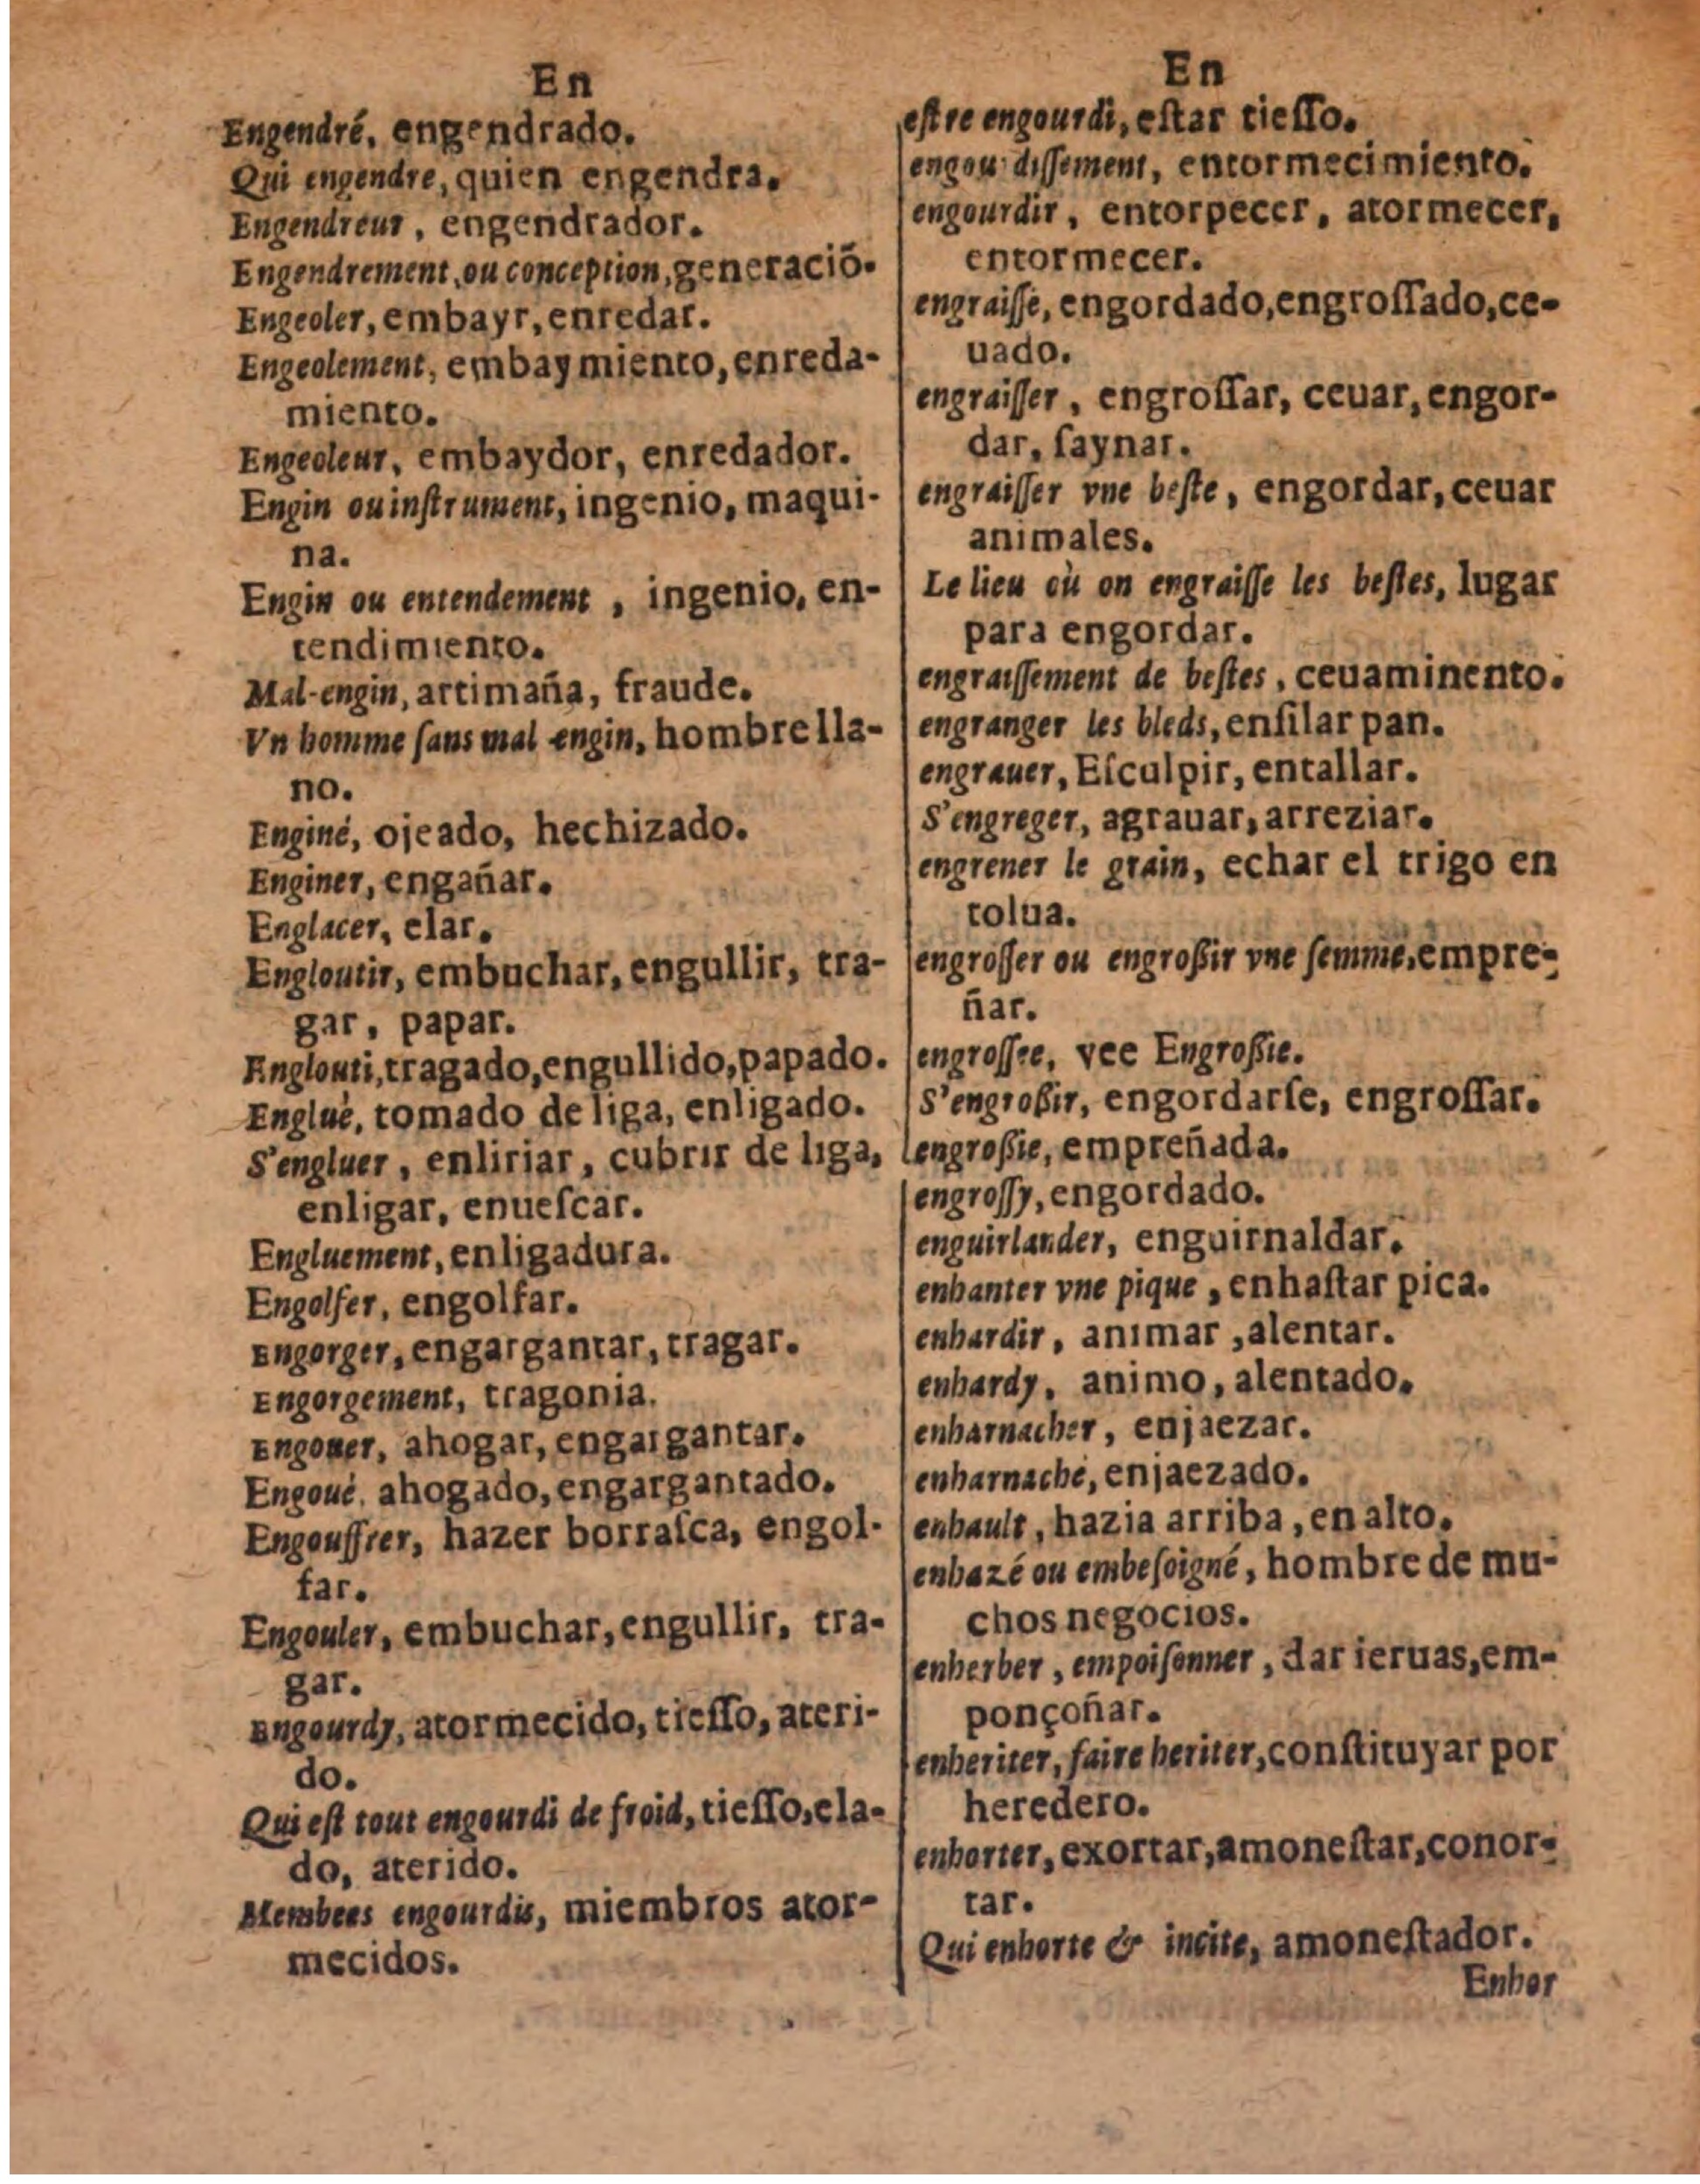 En
Engendré, engendrado.
Qui engendre, quien engendra.
Engendreur, engendrador.
Engendrement, ou conception, generaciõ.
Engeoler, embayr, enredar.
Engeolement, embaymiento, enreda-
miento.
Engeoleur, embaydor, enredador.
Engin ou inſtrument, ingenio, maqui-
na.
Engin ou entendement, ingenio, en-
tendimiento.
Mal-engin, artimaña, fraude.
Vn homme ſans mal engin, hombre lla-
no.
Enginé, ojeado, hechizado.
Enginer, engañar.
Englacer, elar.
Engloutir, embuchar, engullir, tra-
gar, papar.
Englouti, tragado, engullido, papado.
Englué, tomado de liga, enligado.
S'engluer, enliriar, cubrir de liga,
enligar, enueſcar.
Engluement, enligadura.
Engolfer, engolfar.
Engorger, engargantar, tragar.
Engorgement, tragonia.
Engouer, ahogar, engargantar.
Engoué, ahogado, engargantado.
Engouffrer, hazer borraſca, engol-
far.
Engouler, embuchar, engullir, tra-
gar.
Engourdy, atormecido, tieſſo, ateri-
do.
Qui eſt tout engourdi de froid, tieſſo, ela-
do, aterido.
Membees engourdis, miembros ator-
mecidos.
En
eſtre engourdi, eſtar tieſſo.
engou diſſement, entormecimiento.
engourdir, entorpecer, atormecer,
entormecer.
engraiſſé, engordado, engroſſado, ce-
uado.
engraiſſer, engroſſar, ceuar, engor-
dar, ſaynar.
engraiſſer vne beſte, engordar, ceuar
animales.
Le lieu où on engraiſſe les beſtes, lugar
para engordar.
engraiſſement de beſtes, ceuaminento.
engranger les bleds, enſilar pan.
engrauer, Eſculpir, entallar.
S'engreger, agrauar, arreziar.
engrener le grain, echar el trigo en
tolua.
engroſſer ou engroßir vne femme, empre-
ñar.
engroſſee, vee Engroßie.
S'engroßir, engordarſe, engroſſar.
engroßie, empreñada.
engroſſy, engordado.
enguirlander, enguirnaldar.
enhanter vne pique, enhaſtar pica.
enhardir, animar, alentar.
enhardy, animo, alentado.
enharnacher, enjaezar.
enharnaché, enjaezado.
enhault, hazia arriba, en alto.
enhazé ou embeſoigné, hombre de mu-
chos negocios.
enherber, empoiſonner, dar ieruas, em-
ponçoñar.
enheriter, faire heriter, conſtituyar por
heredero.
enhorter, exortar, amoneſtar, conor-
tar.
Qui enhorte & incite, amoneſtador.
Enhor